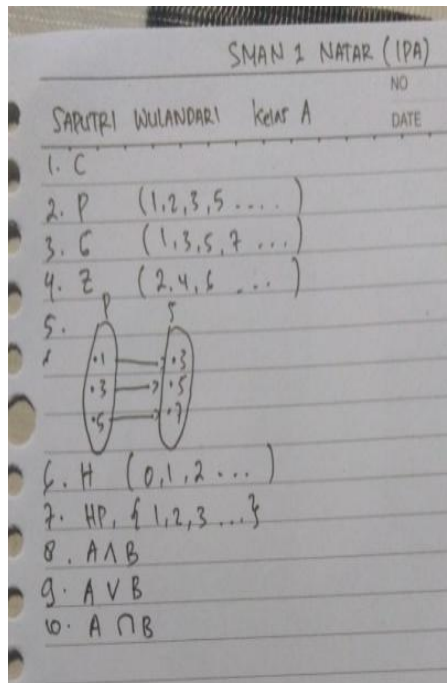 SMAN 1 NATAR (IPA)
NO
SAPUTRI WULANDARI Kelas A DATE
1. C
2. P (1,2,3,5 ....)
3. G (1,3,5,7 ...)
4. Z (2,4,6 ...)
5. P S
.1 .3
.3 .5
.5 .7
6. H (0,1,2 ...)
7. HP, { 1,2,3 ...}
8. A ∧ B
9. A ∨ B
10. A ∩ B